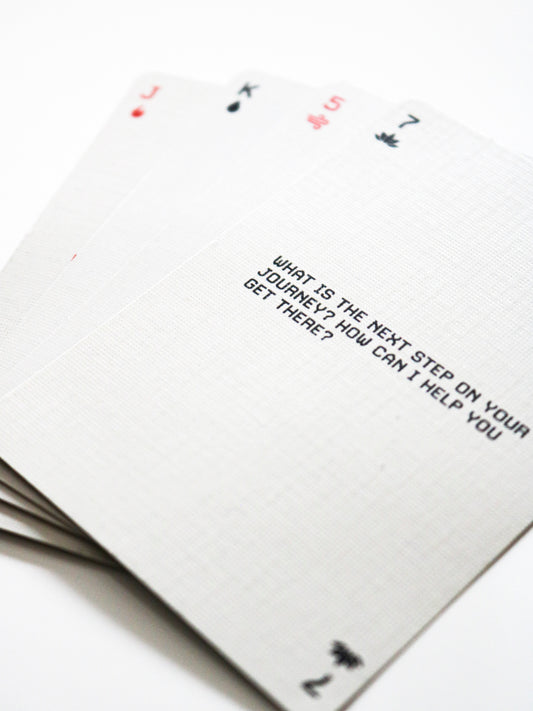 J
K
5
7
WHAT IS THE NEXT STEP ON YOUR
JOURNEY? HOW CAN I HELP YOU
GET THERE?
7